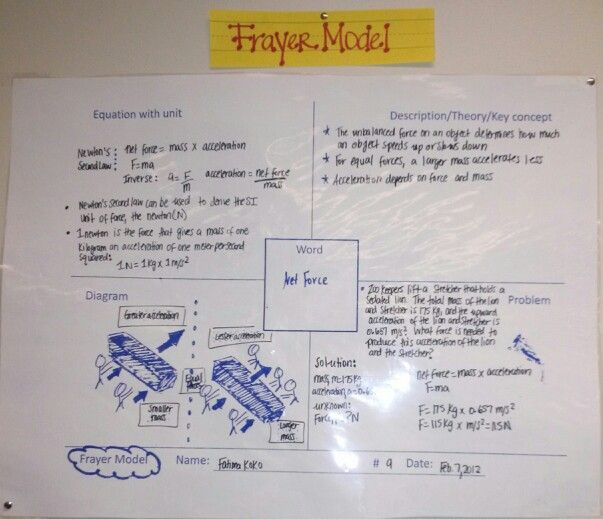 Frayer Model
Equation with unit
Newton's Second Law: net force = mass x acceleration
F=ma
Inverse: a = F/m acceleration = net force/mass
• Newton's second law can be used to derive the SI
unit of force, the newton (N)
• 1 newton is the force that gives a mass of one
kilogram an acceleration of one meter per second
squared:
1N = 1kg x 1m/s²
Description/Theory/Key concept
* The unbalanced force on an object determines how much
an object speeds up or slows down
* For equal forces, a larger mass accelerates less
* Acceleration depends on force and mass
Word
Net Force
Diagram
Greater acceleration
Lesser acceleration
Equal
Smaller
mass
Larger
mass
Problem
• Zoo keepers lift a stretcher that holds a
sedated lion. The total mass of the lion
and stretcher is 175 kg, and the upward
acceleration of the lion and stretcher is
0.657 m/s². What force is needed to
produce this acceleration of the lion
and the stretcher?
Solution:
mass, m=175kg
acceleration, a=0.6
unknown:
Force, ?N
net force = mass x acceleration
F=ma
F= 175 kg x 0.657 m/s²
F= 115 kg x m/s² = 115N
Frayer Model
Name: Fatima Koko
# 9 Date: Feb. 7, 2012